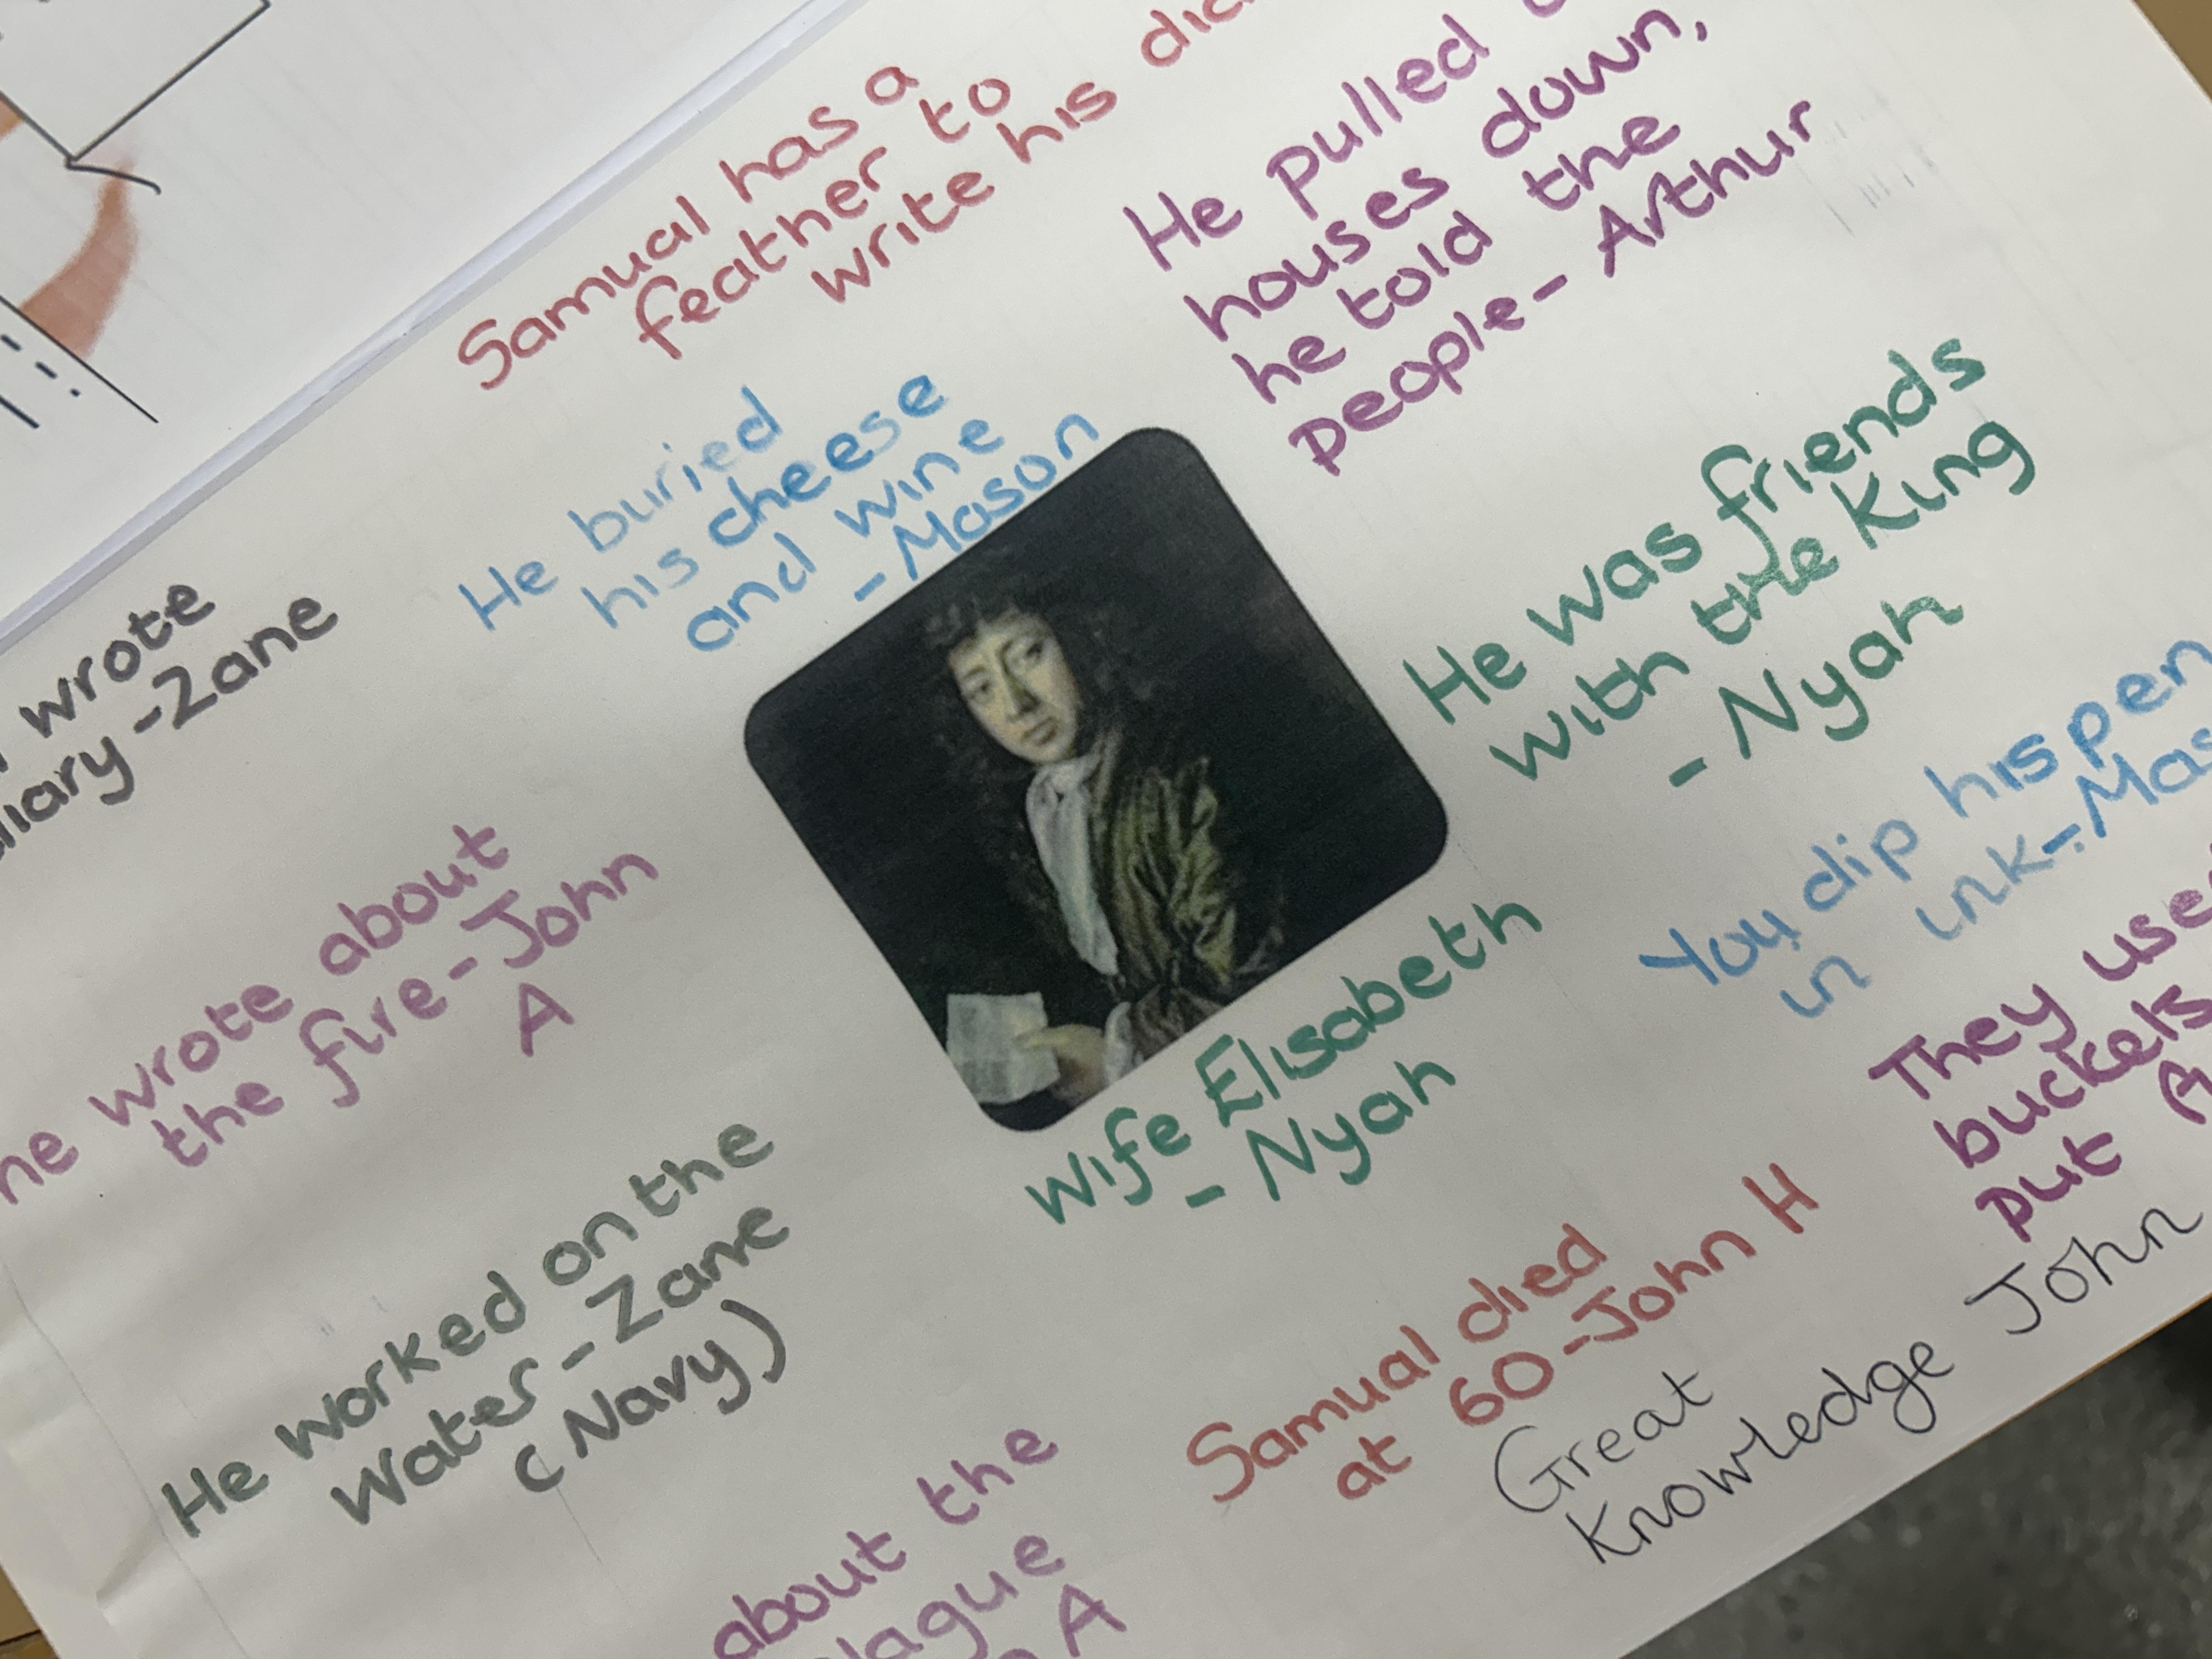 Samual has a
feather to
write his
He pulled
houses down,
he told the
people - Arthur
He buried
his cheese
and wine
- Mason
He was friends
with the King
- Nyah
wrote
- Zane
You dip his pen
in ink -
wrote about
the fire - John
A
Wife Elisabeth
- Nyah
They
buckets
put
He worked on the
Water - Zane
(Navy)
Samual died
at 60 - John H
Great
Knowledge John
about the
A